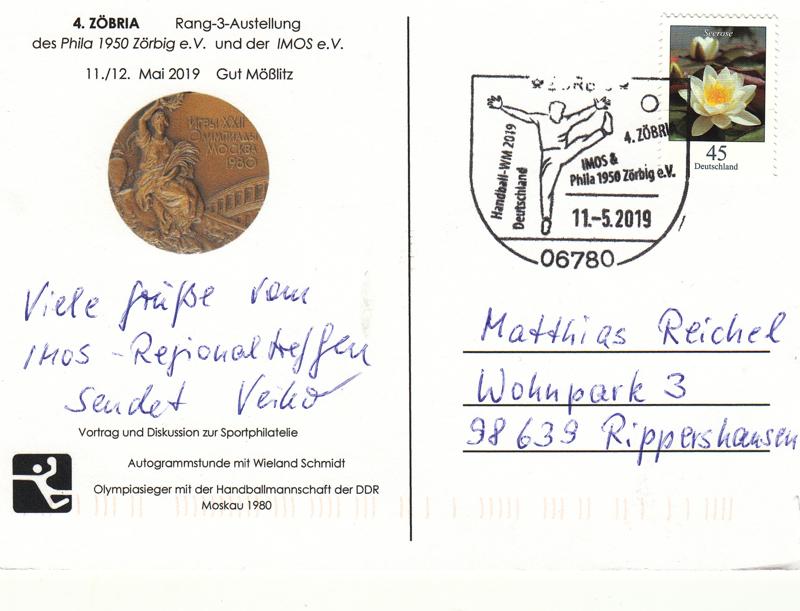 4. ZÖBRIA Rang-3-Austellung
des Phila 1950 Zörbig e.V. und der IMOS e.V.
11./12. Mai 2019 Gut Mößlitz
ИГРЫ XXII
ОЛИМПИАДЫ
МОСКВА
1980
Viele Grüße vom
IMOS - Regionaltreffen
sendet Veiko
Vortrag und Diskussion zur Sportphilatelie
Autogrammstunde mit Wieland Schmidt
Olympiasieger mit der Handballmannschaft der DDR
Moskau 1980
Seerose
45
Deutschland
4. ZÖBRIA
Handball-WM 2019
Deutschland
IMOS &
Phila 1950 Zörbig e.V.
11.-5.2019
06780
Matthias Reichel
Wohnpark 3
98639 Rippershausen